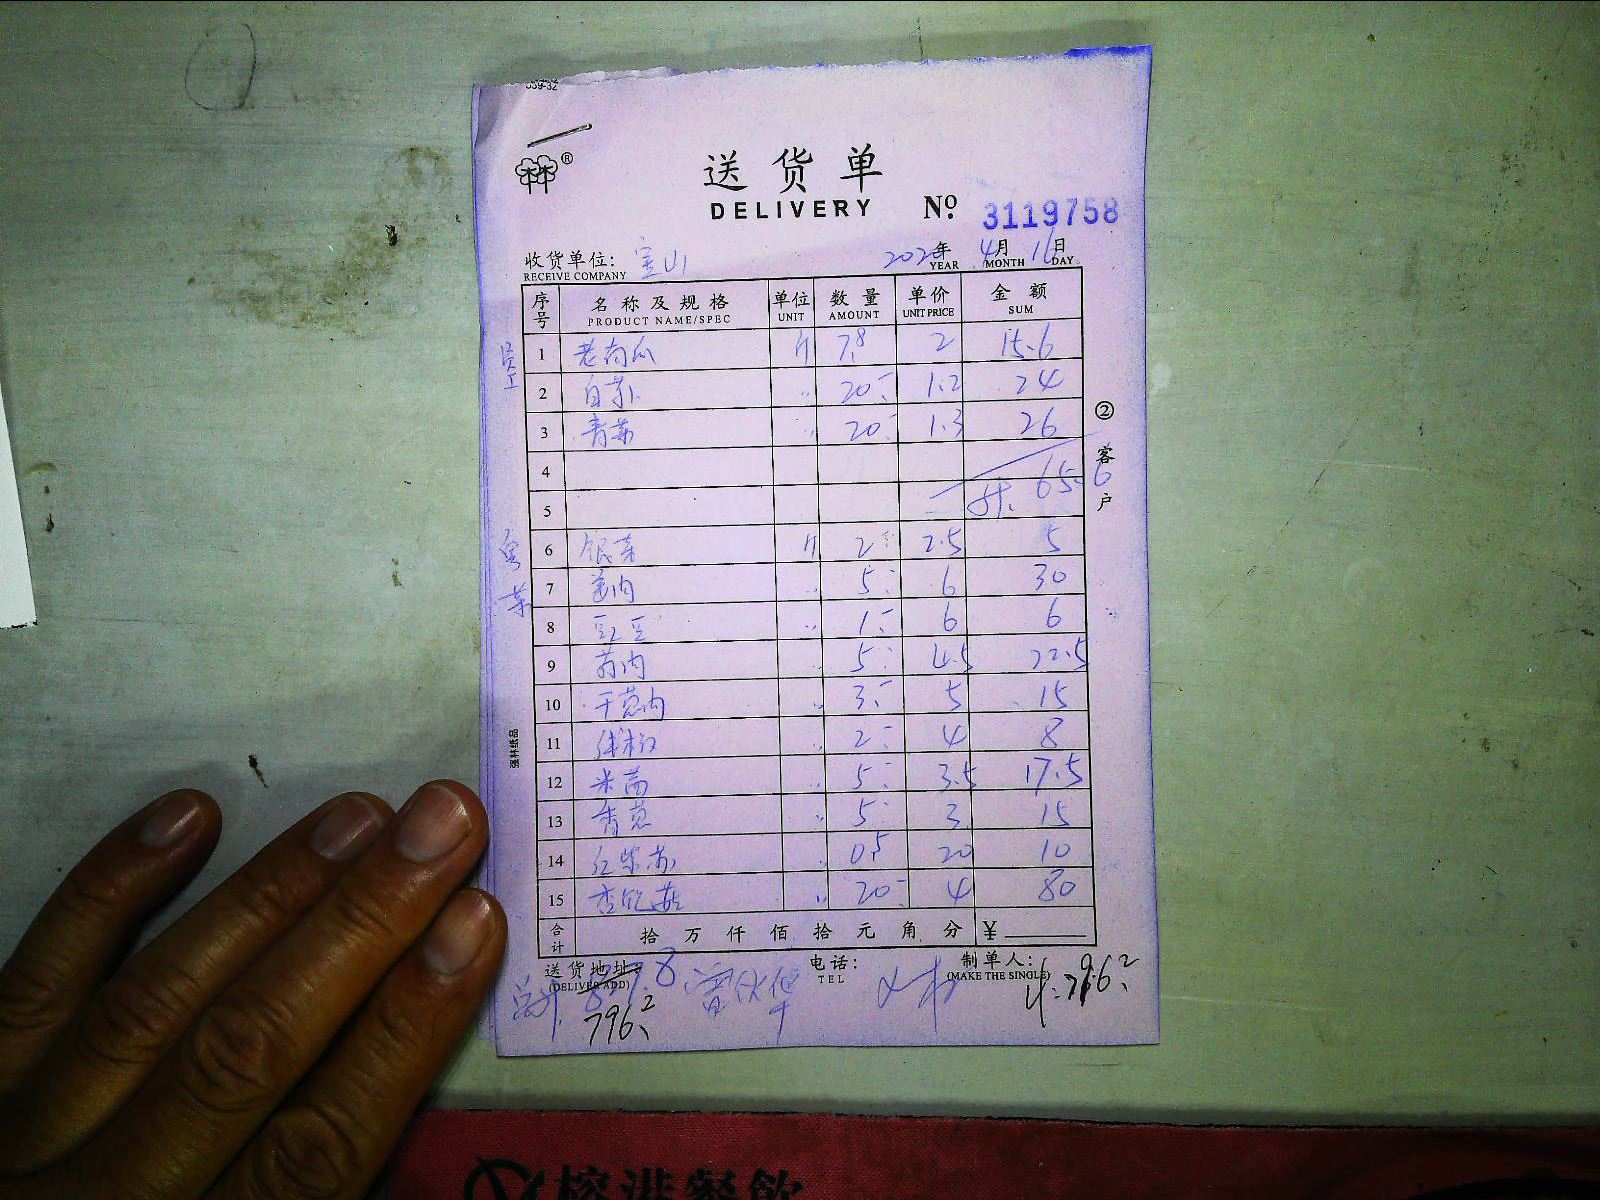 539-32
送货单
DELIVERY № 3119758
收货单位: 宝山 年 4月 16日
RECEIVE COMPANY YEAR MONTH DAY
序号 名称及规格 单位 数量 单价 金额
PRODUCT NAME/SPEC UNIT AMOUNT UNIT PRICE SUM
员工
1 老南瓜 斤 7.8 2 15.6
2 20 1.2 24
3 青菜 20 1.3 26
② 客户
4
5 计. 65.6
6 银芽 斤 2 2.5 5
7 姜肉 5 6 30
8 豇豆 1 6 6
9 5 4.5 22.5
10 干葱肉 3 5 15
11 2 4 8
12 米茴 5 3.5 17.5
13 香葱 5 3 15
14 红紫苏 0.5 20 10
15 杏鲍菇 20 4 80
强林纸品
合计 拾万仟佰拾元角分 ¥
送货地址: 电话: 制单人:
(DELIVER ADD) TEL (MAKE THE SINGLE)
796.2 计:796.2
榕港餐飲